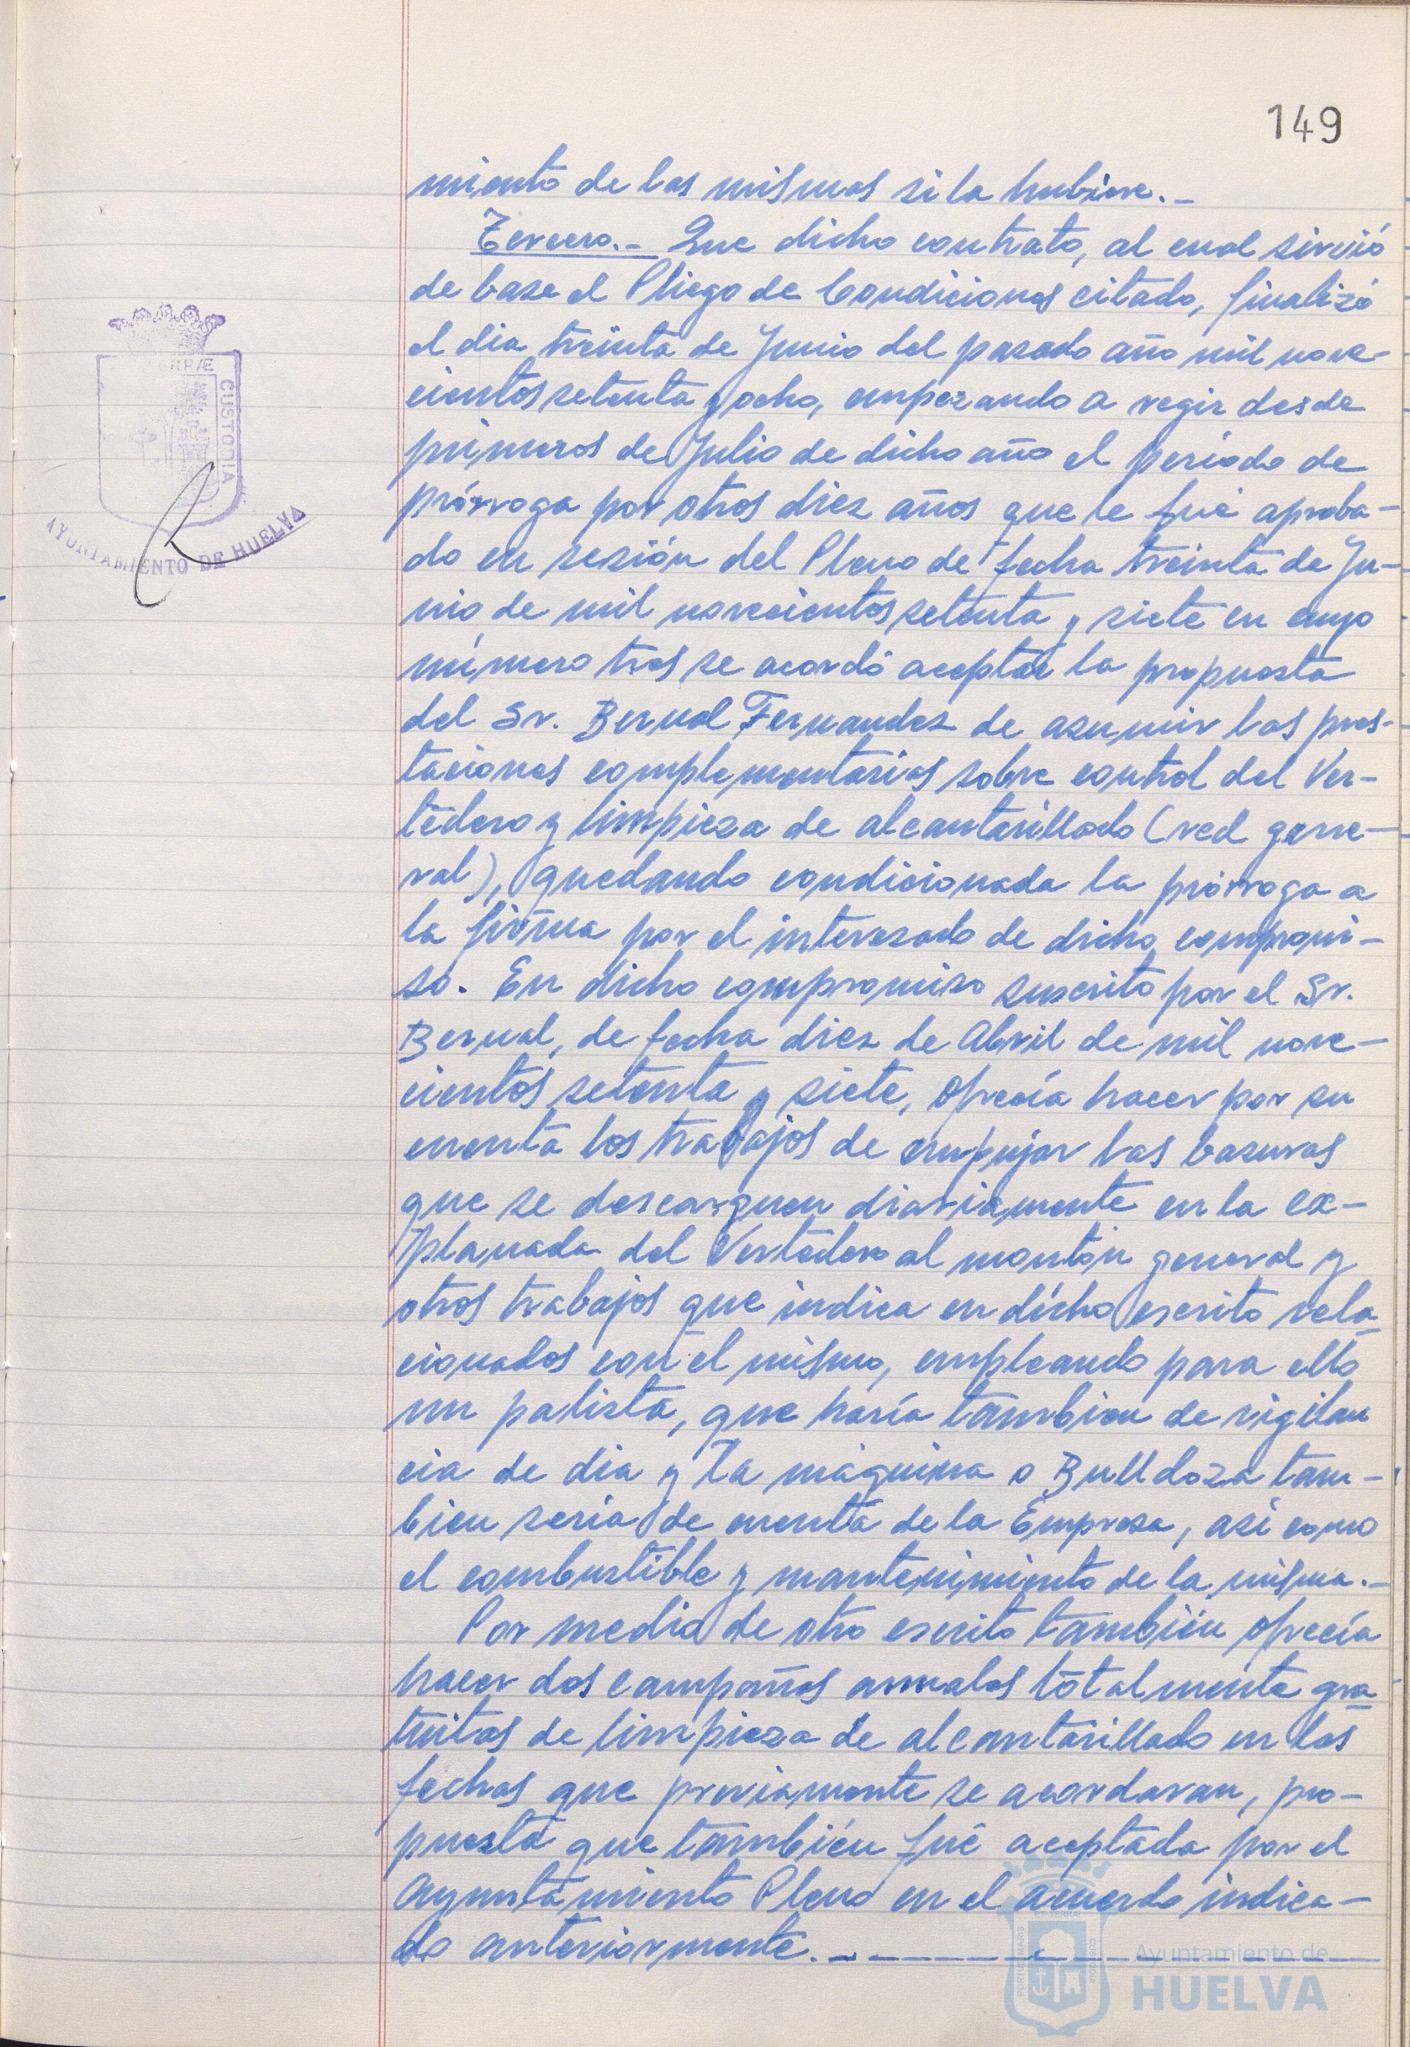 149
miento de las mismas si la hubiere.-
Tercero.- Que dicho contrato, al cual sirvió
de base el Pliego de Condiciones citado, finalizó
el dia treinta de Junio del pasado año mil nove-
cientos setenta y ocho, empezando a regir desde
primeros de Julio de dicho año el periodo de
prórroga por otros diez años que le fué aproba-
do en sesión del Pleno de fecha treinta de Ju-
nio de mil novecientos setenta y siete en cuyo
número tres se acordó aceptar la propuesta
del Sr. Bernal Fernandez de asumir las pres-
taciones complementarias sobre control del Ver-
tedero y limpieza de alcantarillado (red gene-
ral), quedando condicionada la prórroga a
la firma por el interesado de dicho compromi-
so. En dicho compromiso suscrito por el Sr.
Bernal, de fecha diez de Abril de mil nove-
cientos setenta y siete, ofrecía hacer por su
cuenta los trabajos de empujar las basuras
que se descarguen diariamente en la ex-
planada del Vertedero al montón general y
otros trabajos que indica en dicho escrito rela
cionados con el mismo, empleando para ello
un palista, que haría tambien de vigilan
cia de dia y la máquina o Bulldoza tam-
bien seria de cuenta de la Empresa, asi como
el combustible y mantenimiento de la misma.-
Por media de otro escrito también ofrecía
hacer dos campañas anuales totalmente gra
tuitas de limpieza de alcantarillado en las
fechas que previamente se acordaran, pro-
puesta que también fué aceptada por el
Ayuntamiento Pleno en el acuerdo indica-
do anteriormente.-
CUSTODIA
AYUNTAMIENTO DE HUELVA
Ayuntamiento de
HUELVA